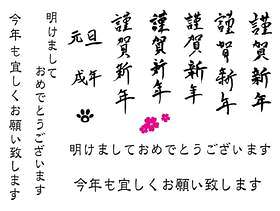 謹賀新年
謹賀新年
謹賀新年
謹賀新年
謹賀新年
元旦
戌年
明けまして
おめでとうございます
今年も宜しくお願い致します
明けましておめでとうございます
今年も宜しくお願い致します